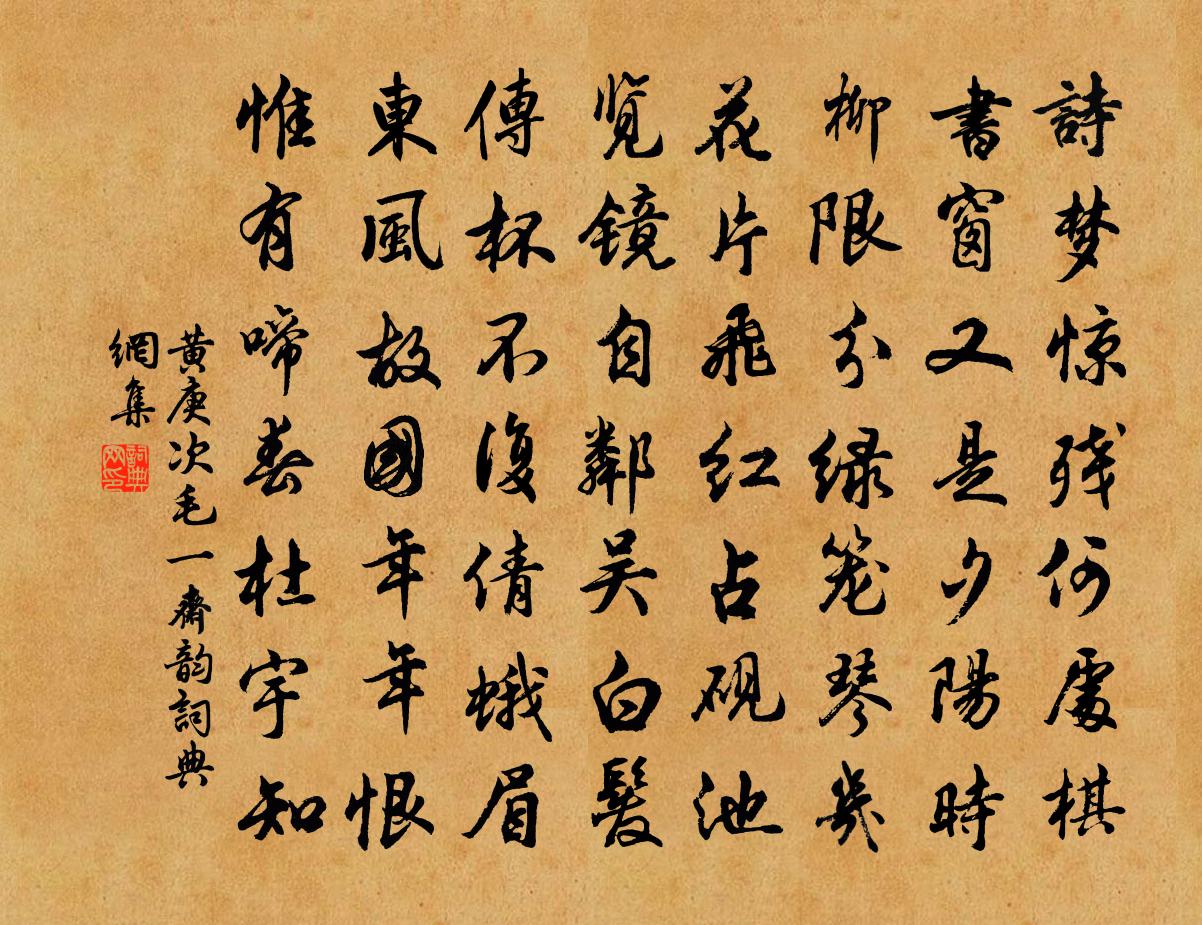 詩梦惊残何處棋
書窗又是夕陽時
柳限分绿笼琴几
花片飛红占砚池
览镜自鄰吴白髮
傳杯不復倩蛾眉
東風故國年年恨
惟有啼春杜宇知
黄庚次毛一齋韵詞典
網集
詞典網印